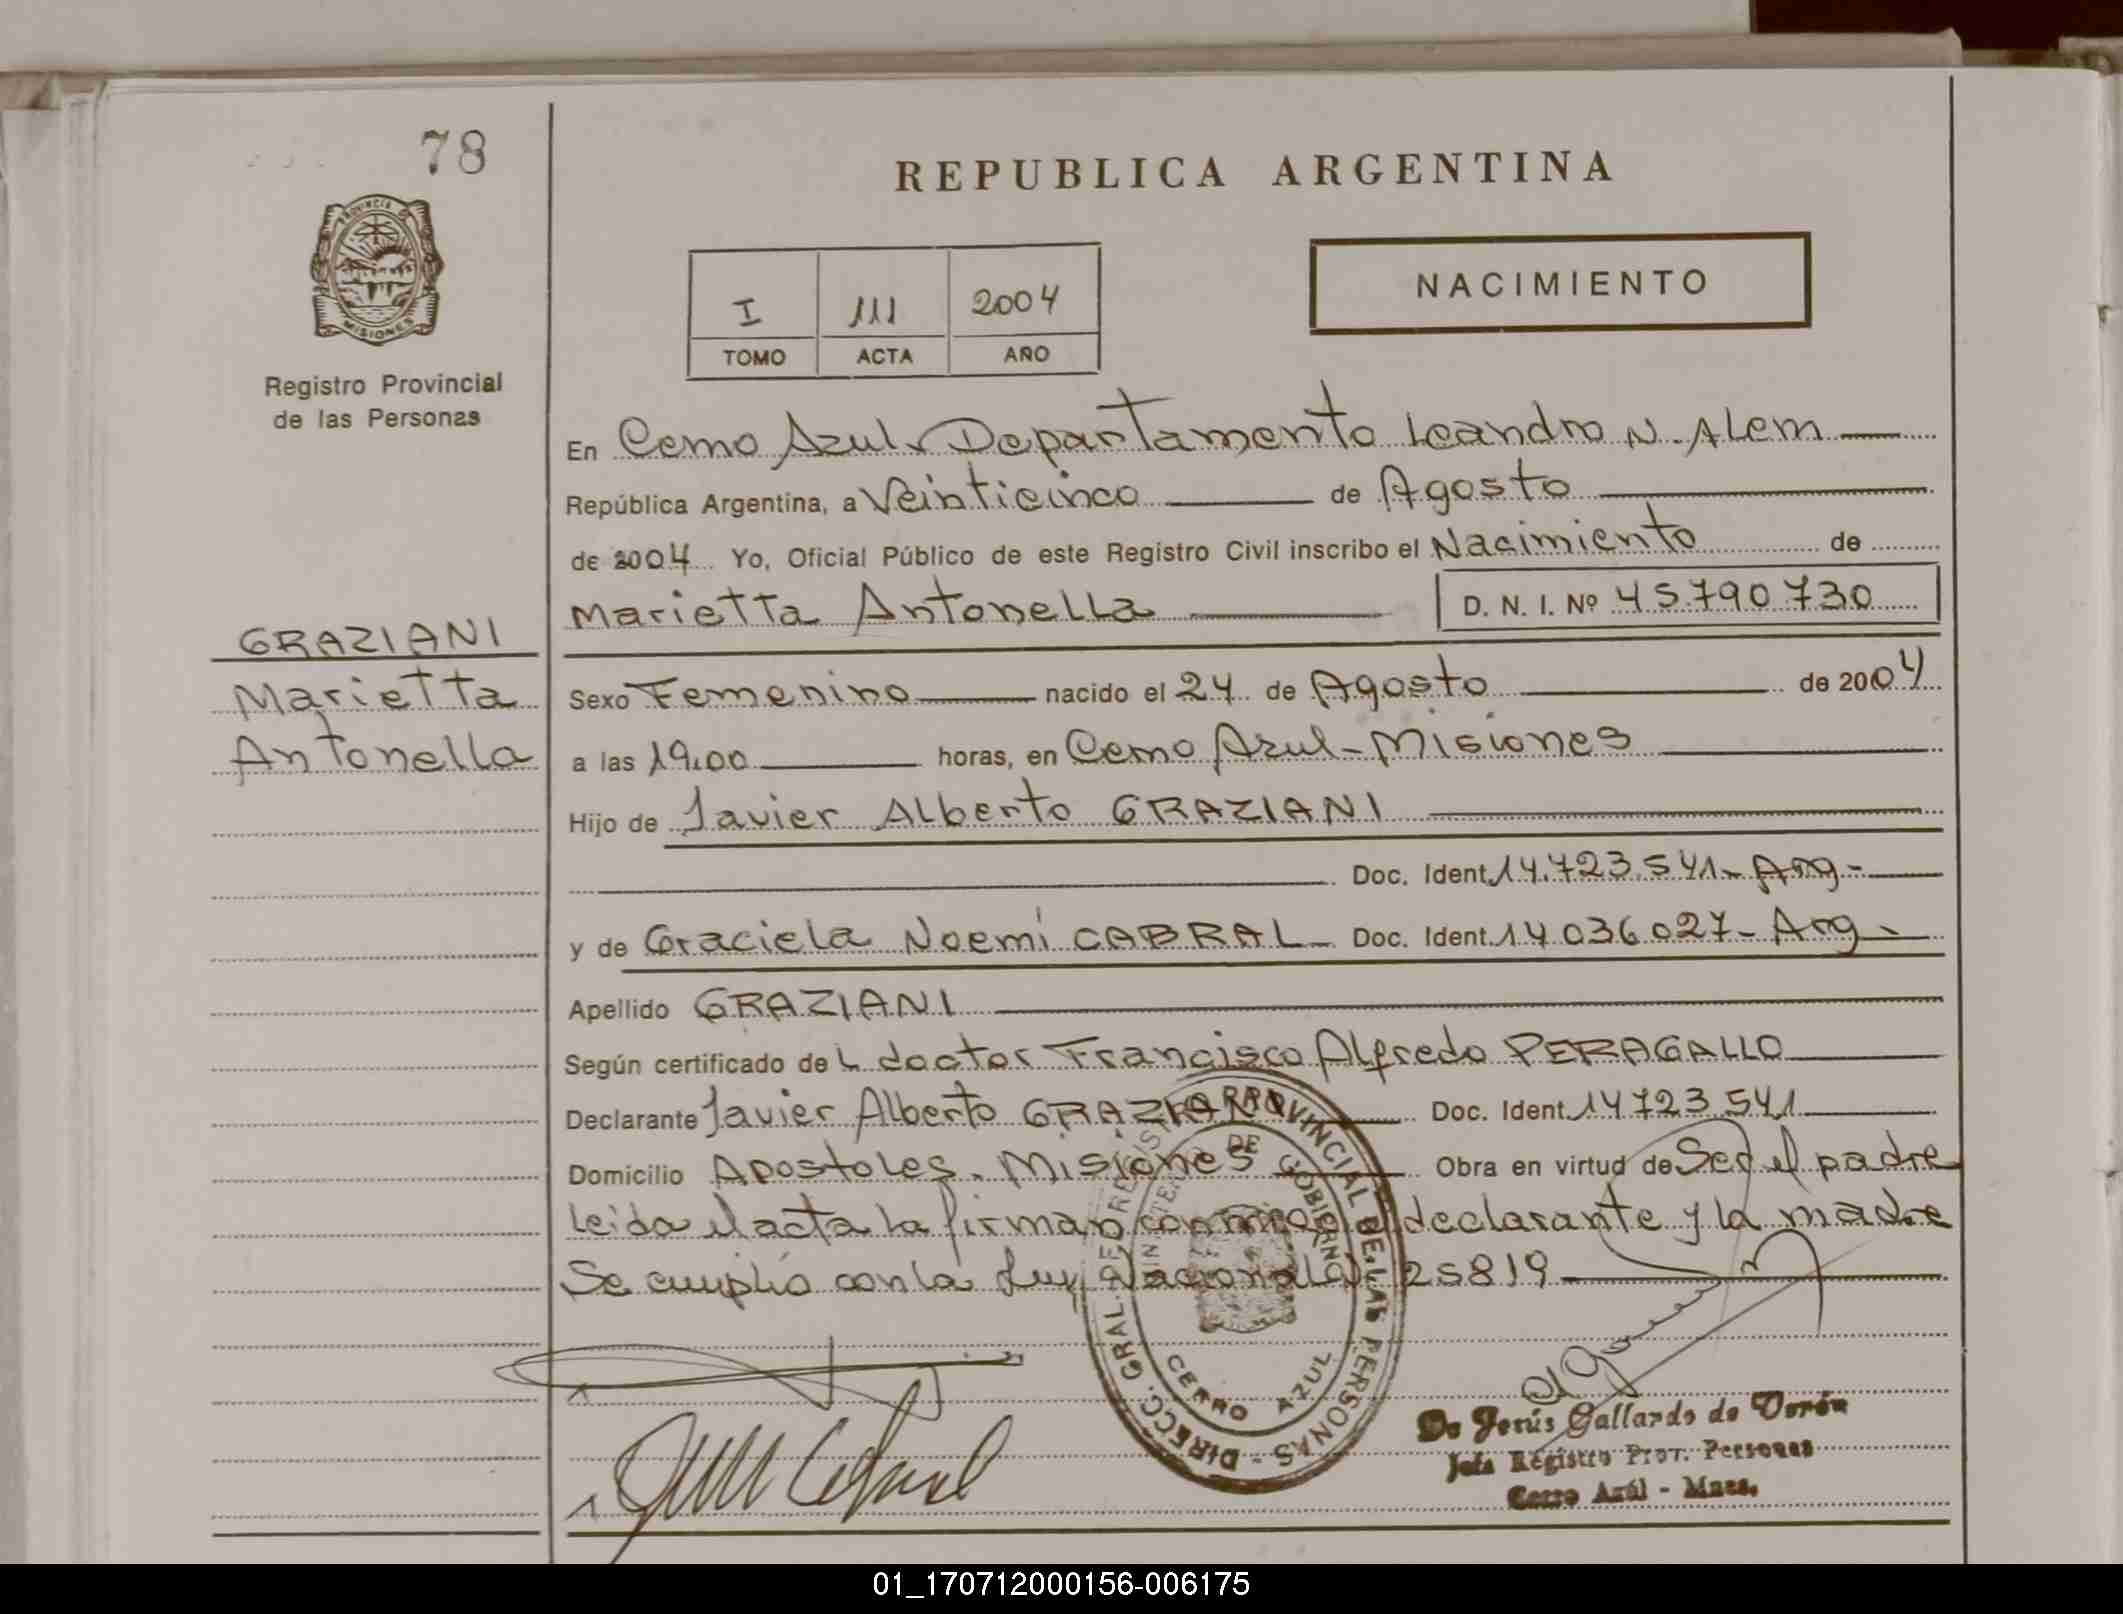 78
REPUBLICA ARGENTINA
PROVINCIA DE
MISIONES
Registro Provincial
de las Personas
I 111 2004
TOMO ACTA AÑO
NACIMIENTO
En Cerro Azul, Departamento Leandro N. Alem
República Argentina, a Veinticinco de Agosto
de 2004 Yo, Oficial Público de este Registro Civil inscribo el Nacimiento de
Marietta Antonella D. N. I. Nº 45.790.730
GRAZIANI
Marietta
Antonella
Sexo Femenino nacido el 24 de Agosto de 2004
a las 19.00 horas, en Cerro Azul - Misiones
Hijo de Javier Alberto GRAZIANI
Doc. Ident. 14.723.541 - Arg -
y de Graciela Noemí CABRAL - Doc. Ident. 14 036 027 - Arg -
Apellido GRAZIANI
Según certificado de L doctor Francisco Alfredo PERAGALLO
Declarante Javier Alberto GRAZIANI Doc. Ident. 14 723.541
Domicilio Apostoles. Misiones Obra en virtud de Ser el padre
Leida el acta la firman conmigo el declarante y la madre
Se cumplió con la Ley Nacional 25819
DIRECC. GRAL. DE REGISTRO PROVINCIAL DE LAS PERSONAS -
DE GOBIERNO
CERRO AZUL
De Jesús Gallardo de Verón
Jefa Registro Prov. Personas
Cerro Azúl - Mnes.
01_170712000156-006175